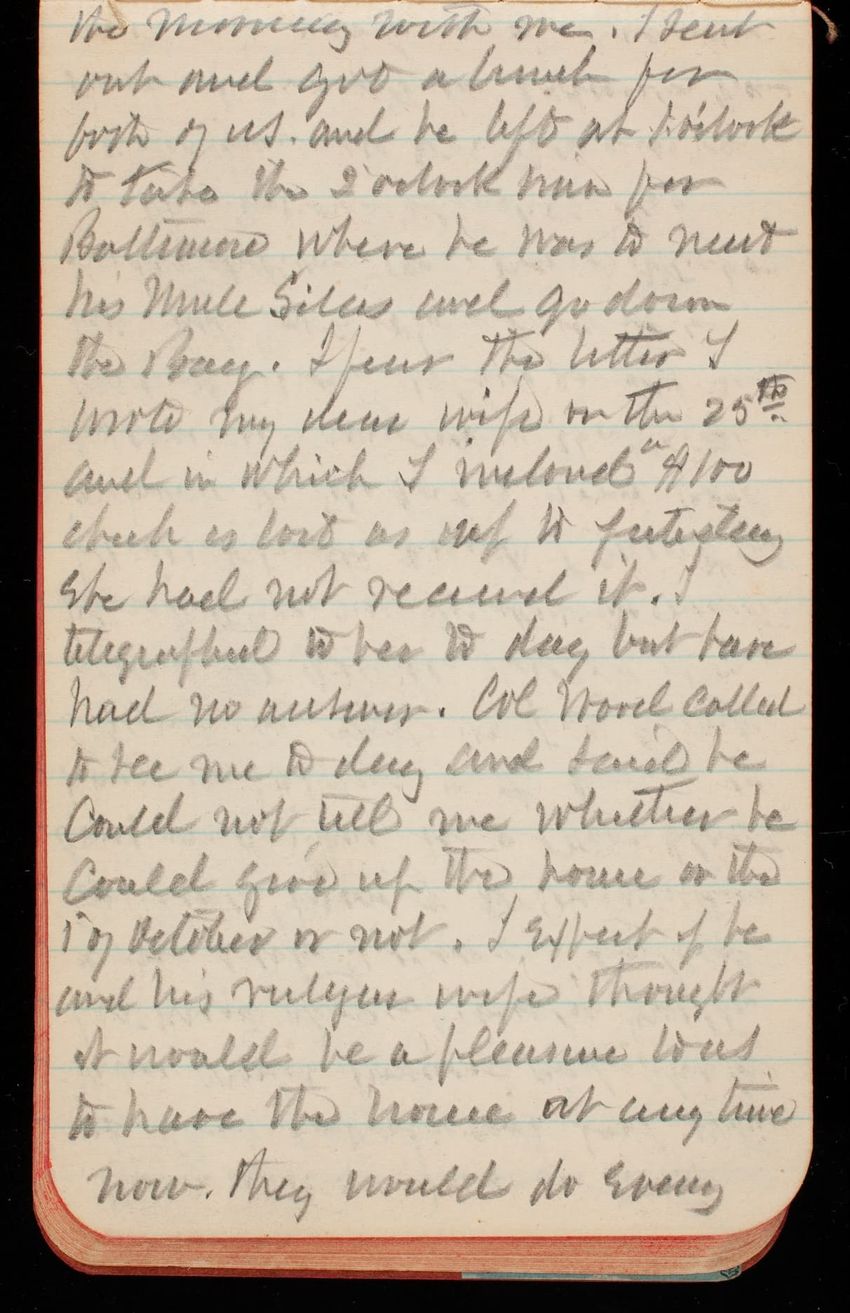 the morning with me. I sent
out and got a lunch for
both of us. and he left at 1 o'clock
to take the 2 o'clock train for
Baltimore where he was to meet
his Mule Silas and go down
the Bay. I fear the letter I
wrote my dear wife on the 25th
and in which I inclosed a $100
check is lost as up to yesterday
She had not received it. I
telegraphed to her to day but have
had no answer. Col Ward called
to see me to day and said he
Could not tell me whether he
Could give up the house on the
1 of October or not. I Expect if he
and his vulgar wife thought
it would be a pleasure to us
to have the house at any time
now. they would do Every